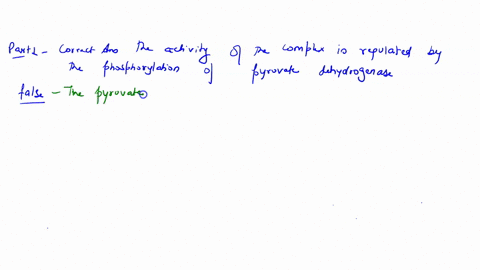 Part1 - Correct Ans The activity of the complex is regulated by
the phosphorylation of pyruvate dehydrogenase
false - The pyruvate